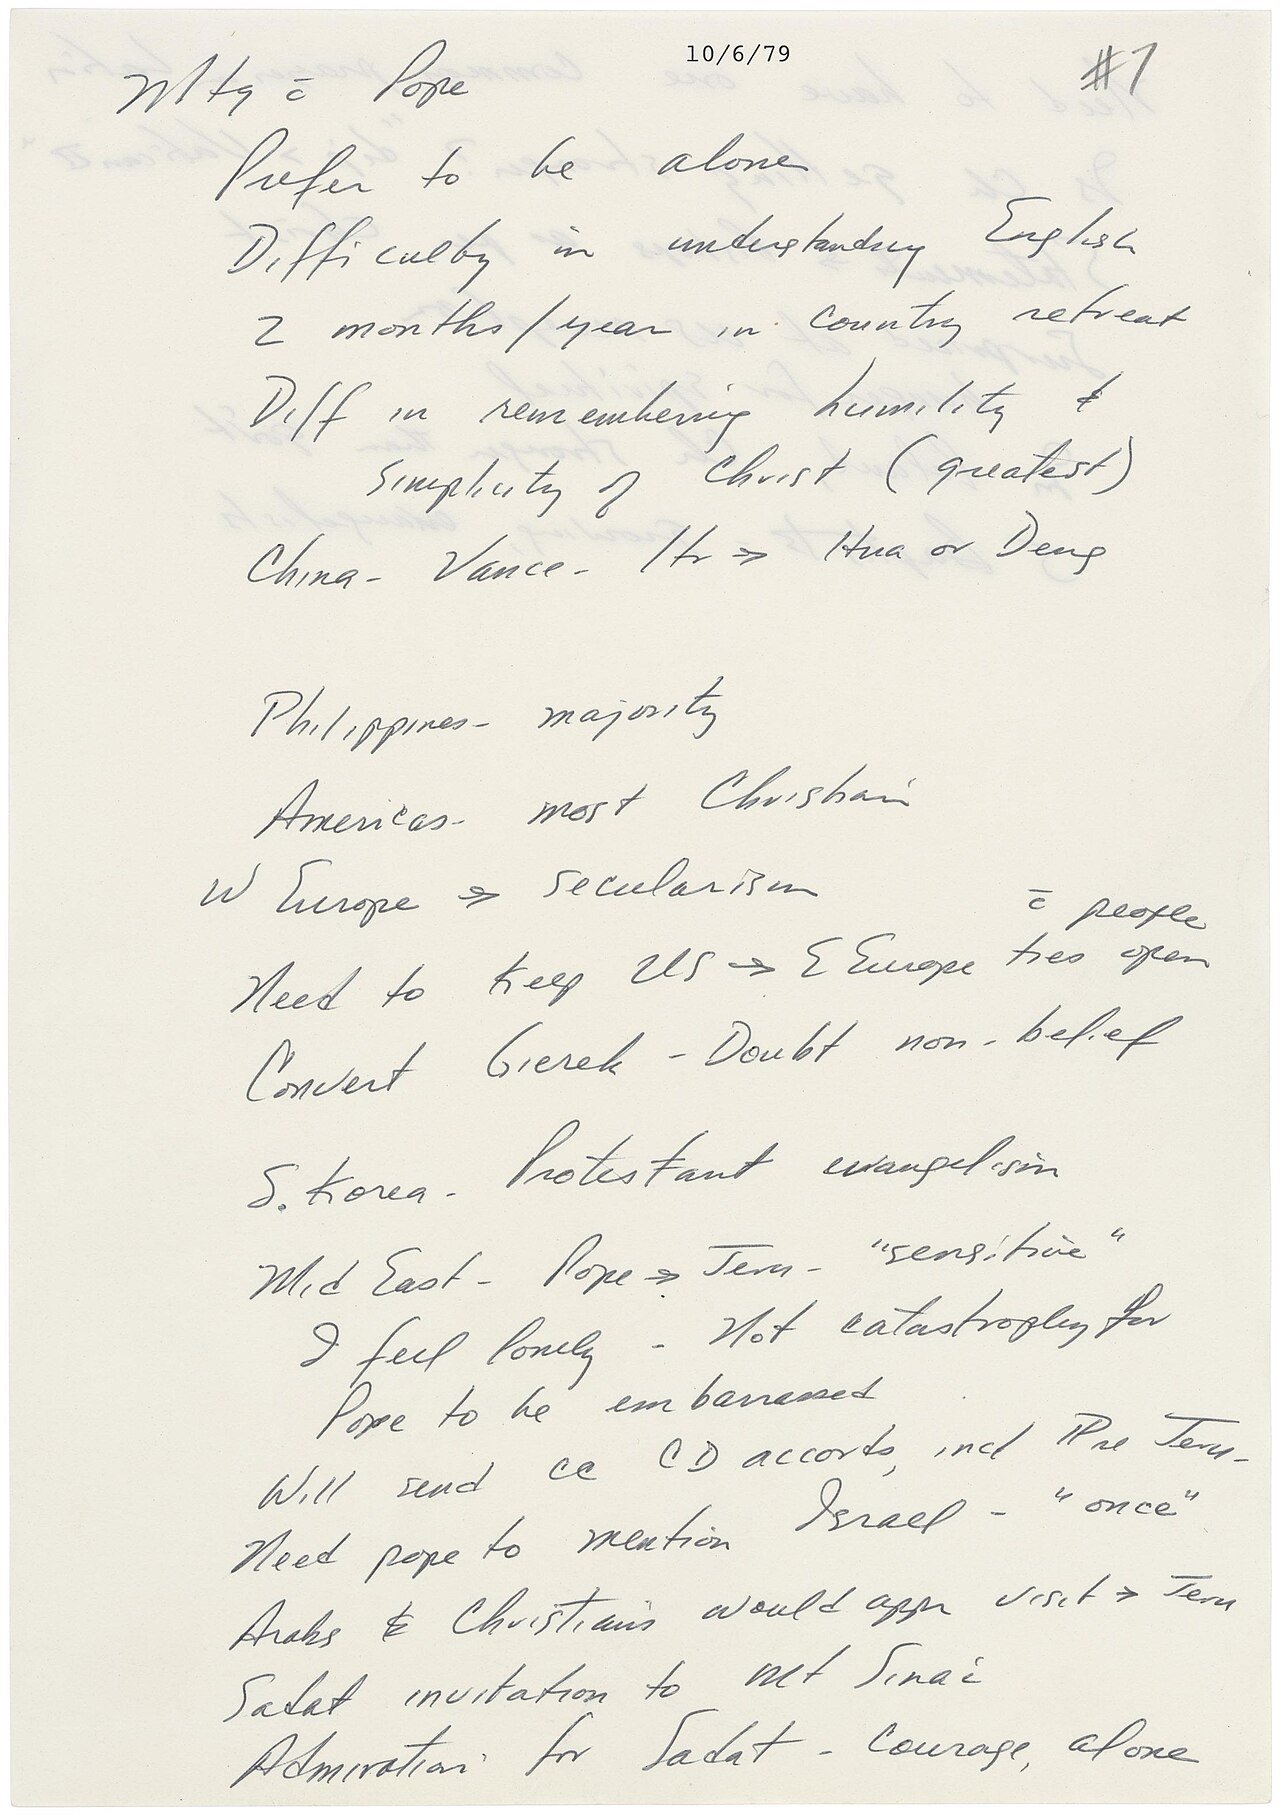 10/6/79
#1
Mtg c̄ Pope
Prefer to be alone
Difficulty in understanding English
2 months/year in country retreat
Diff in remembering humility &
simplicity of Christ (greatest)
China - Vance - ltr ⇒ Hua or Deng
Philippines - majority
Americas - most Christian
W Europe ⇒ secularism
c̄ people
Need to keep US → E Europe ties open
Convert Gierek - Doubt non-belief
S. Korea - Protestant evangelism
Mid East - Pope ⇒ Jeru - "sensitive"
I feel lonely - Not catastrophy for
Pope to be embarrassed
Will send cc CD accords, incl re Jeru -
Need pope to mention Israel - "once"
Arabs & Christians would appr visit → Jeru
Sadat invitation to Mt Sinai
Admiration for Sadat - courage, alone